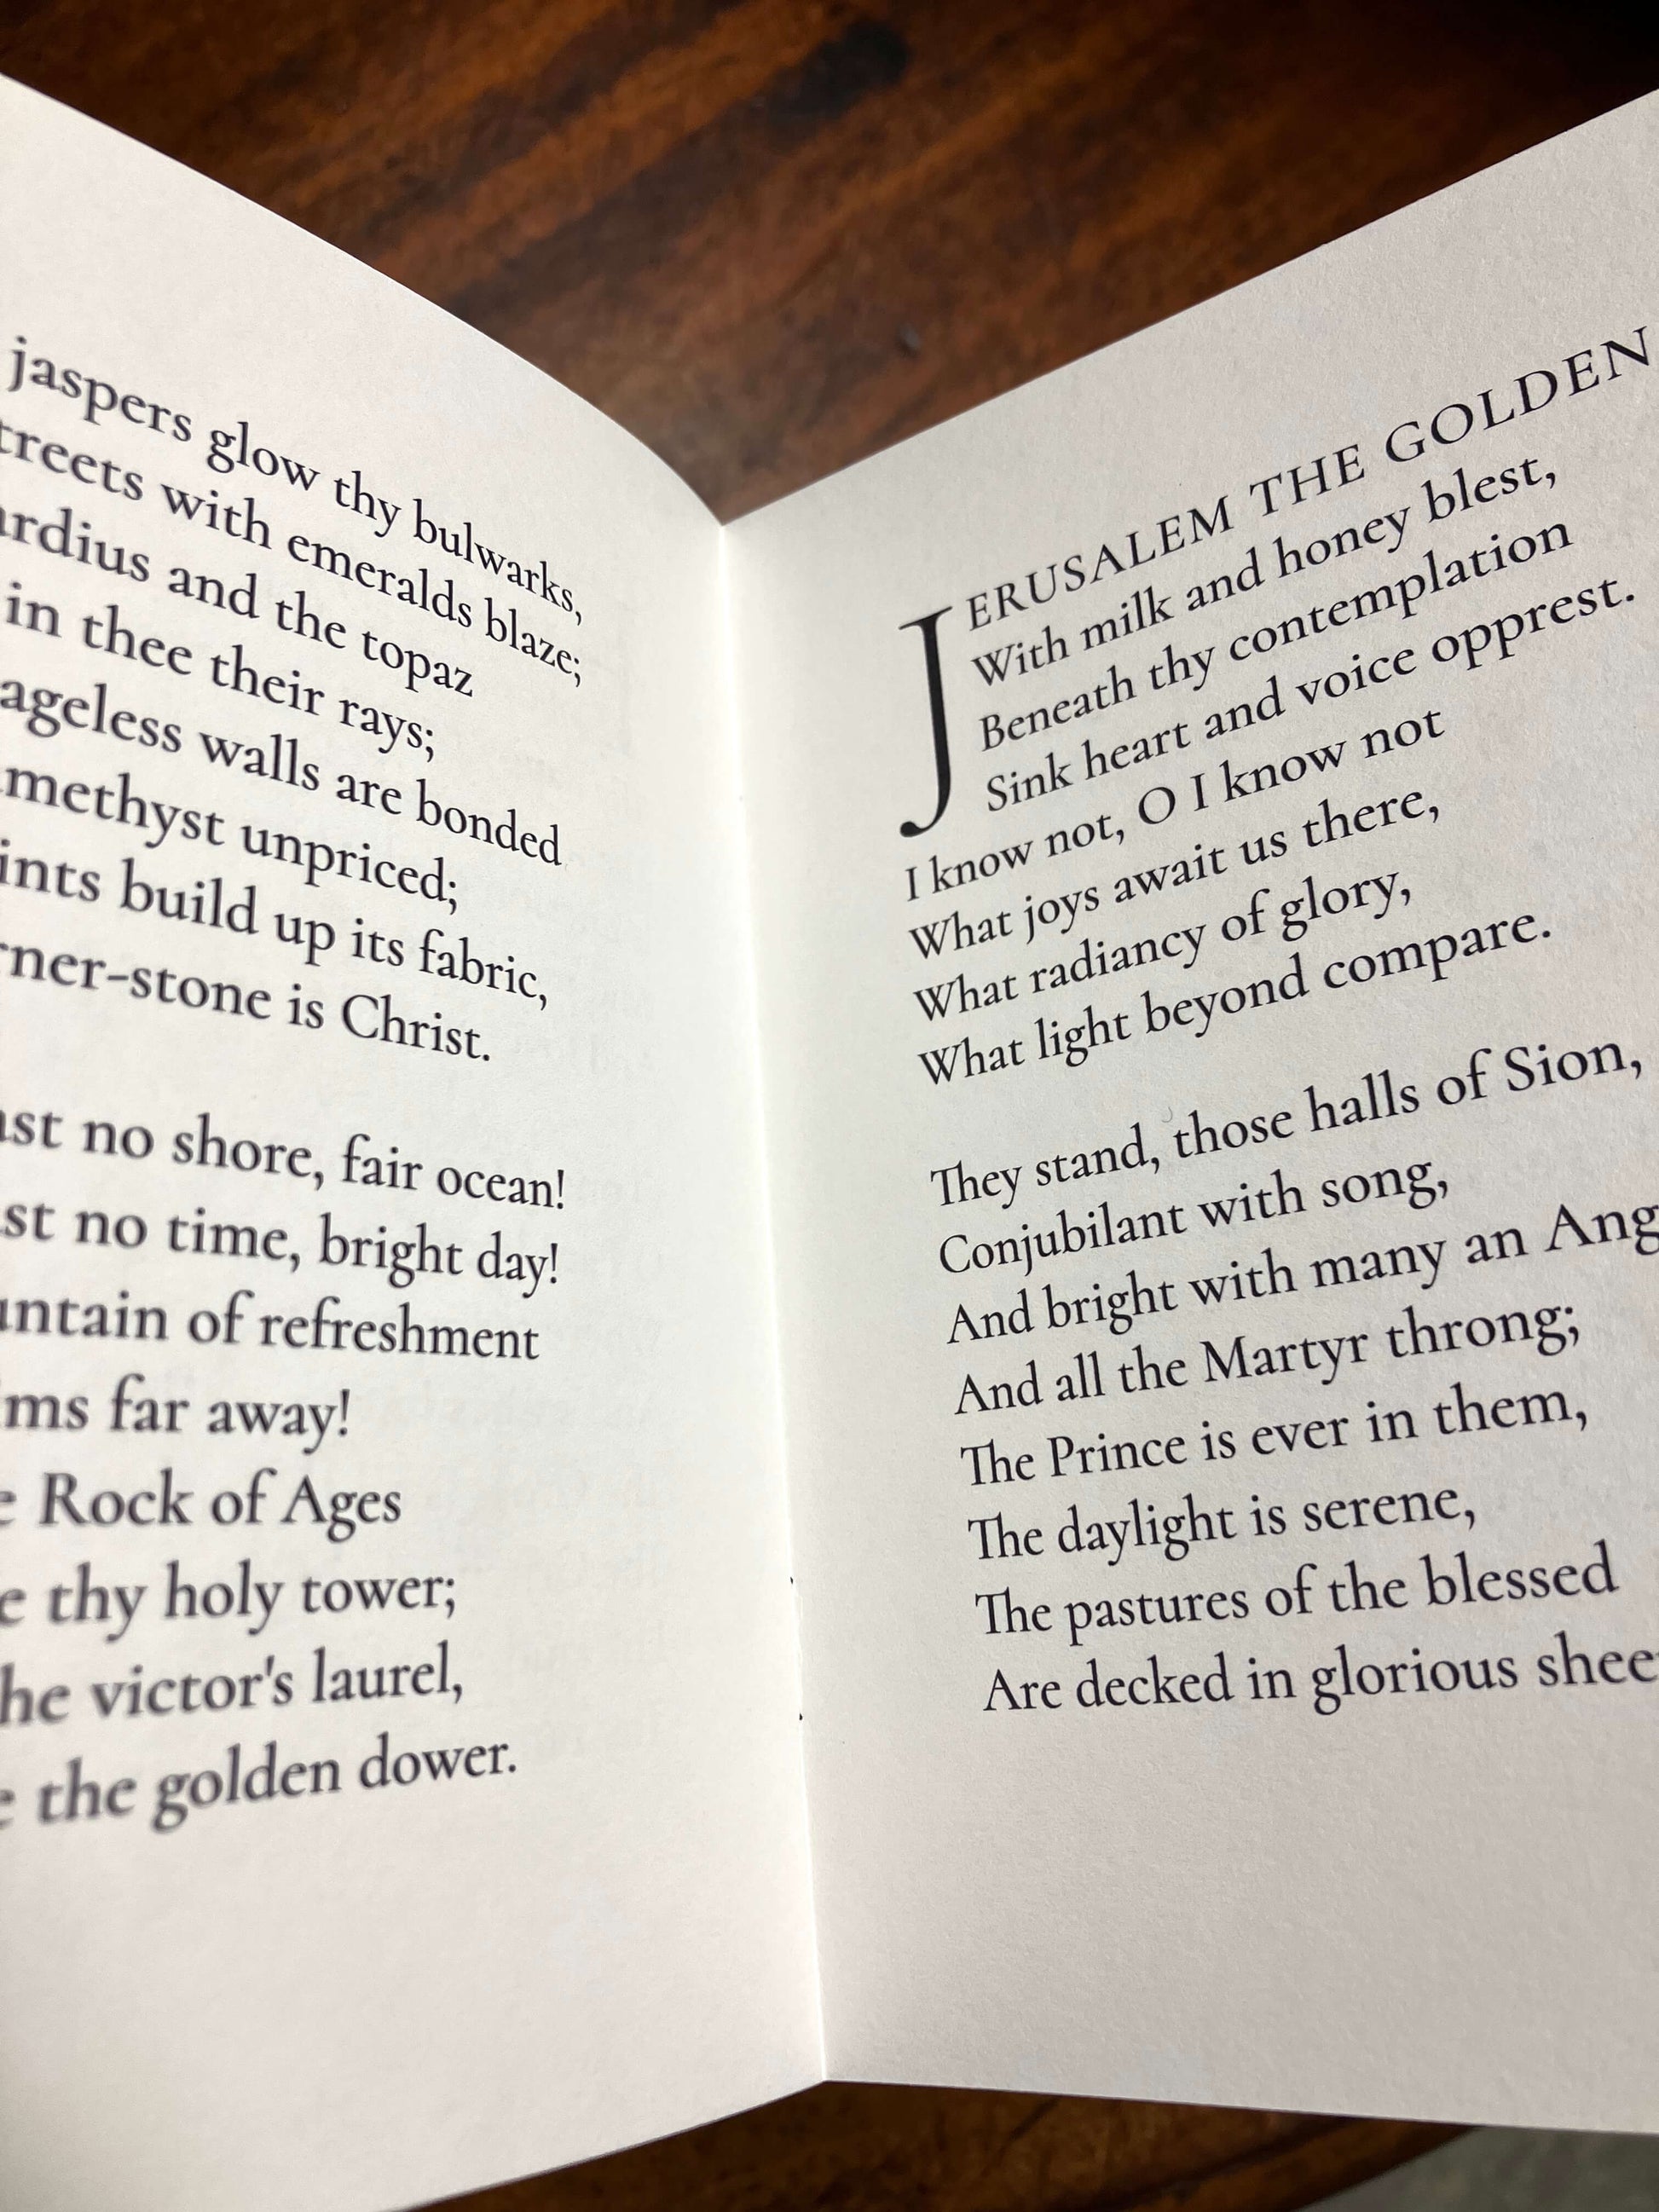 jaspers glow thy bulwarks,
with emeralds blaze;
and the topaz
in thee their rays;
ageless walls are bonded
unpriced;
build up its fabric,
is Christ.
no shore, fair ocean!
no time, bright day!
of refreshment
far away!
Rock of Ages
thy holy tower;
victor's laurel,
the golden dower.
JERUSALEM THE GOLDEN
With milk and honey blest,
Beneath thy contemplation
Sink heart and voice opprest.
I know not, O I know not
What joys await us there,
What radiancy of glory,
What light beyond compare.
They stand, those halls of Sion,
Conjubilant with song,
And bright with many an
And all the Martyr throng;
The Prince is ever in them,
The daylight is serene,
The pastures of the blessed
Are decked in glorious